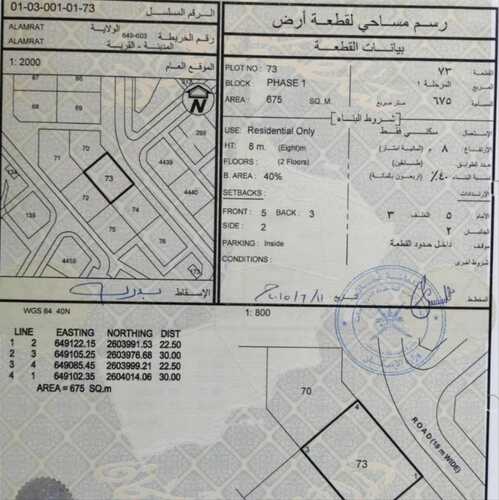 01-03-001-01-73
الـرقـم المسلسل
رسـم مسـاحي لـقطعـة أرض
ALAMRAT
الولاية
رقـم الخريطـة 649-603
ALAMRAT
المدينـة - القريـة
بيـانـات القطعـة
1: 2000
الموقع العام
PLOT NO : 73
٧٣
BLOCK PHASE 1
المرحلة ١
AREA : 675 SQ. M.
٦٧٥ متر مربع
المساحة
شروط البناء
USE: Residential Only
سكنـي فقـط
الإستعمال
HT: 8 m. (Eight)m
٨ م
الإرتفاع
FLOORS : (2 Floors)
طـابقـين
عدد الطوابق
B. AREA : 40%
٤٠٪
SETBACKS :
الإرتدادات
FRONT : 5 BACK : 3
الأمام ٥ الخلف ٣
SIDE : 2
٢
PARKING : Inside
داخل حدود القطعة
موقف
CONDITIONS :
شروط أخرى
71
70
72
73
4439
4440
288
الإسقاط
المخطط
WGS 84 40N
1: 800
LINE EASTING NORTHING DIST
1 2 649122.15 2603991.53 22.50
2 3 649105.25 2603976.68 30.00
3 4 649085.45 2603999.21 22.50
4 1 649102.35 2604014.06 30.00
AREA = 675 SQ.m
70
4
3
1
73
ROAD (18 m WIDE)